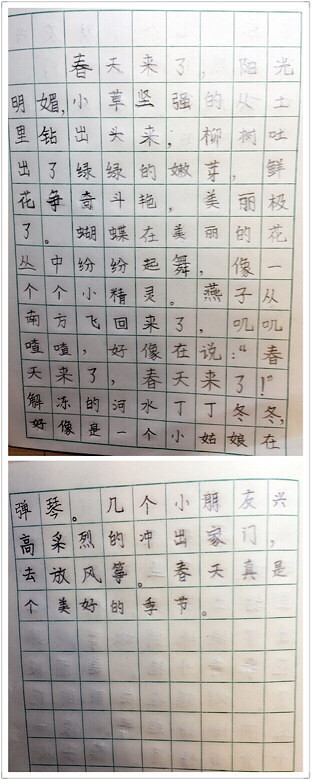 春天来了，阳光
明媚，小草坚强的从土
里钻出头来；柳树吐
出了绿绿的嫩芽，鲜
花争奇斗艳，美丽极
了。蝴蝶在美丽的花
丛中纷纷起舞，像一
个个小精灵。燕子从
南方飞回来了，叽叽
喳喳，好像在说：“春
天来了，春天来了！”
解冻的河水丁丁冬冬，
好像是一个小姑娘在
弹琴。几个小朋友兴
高采烈的冲出家门，
去放风筝。春天真是
个美好的季节。